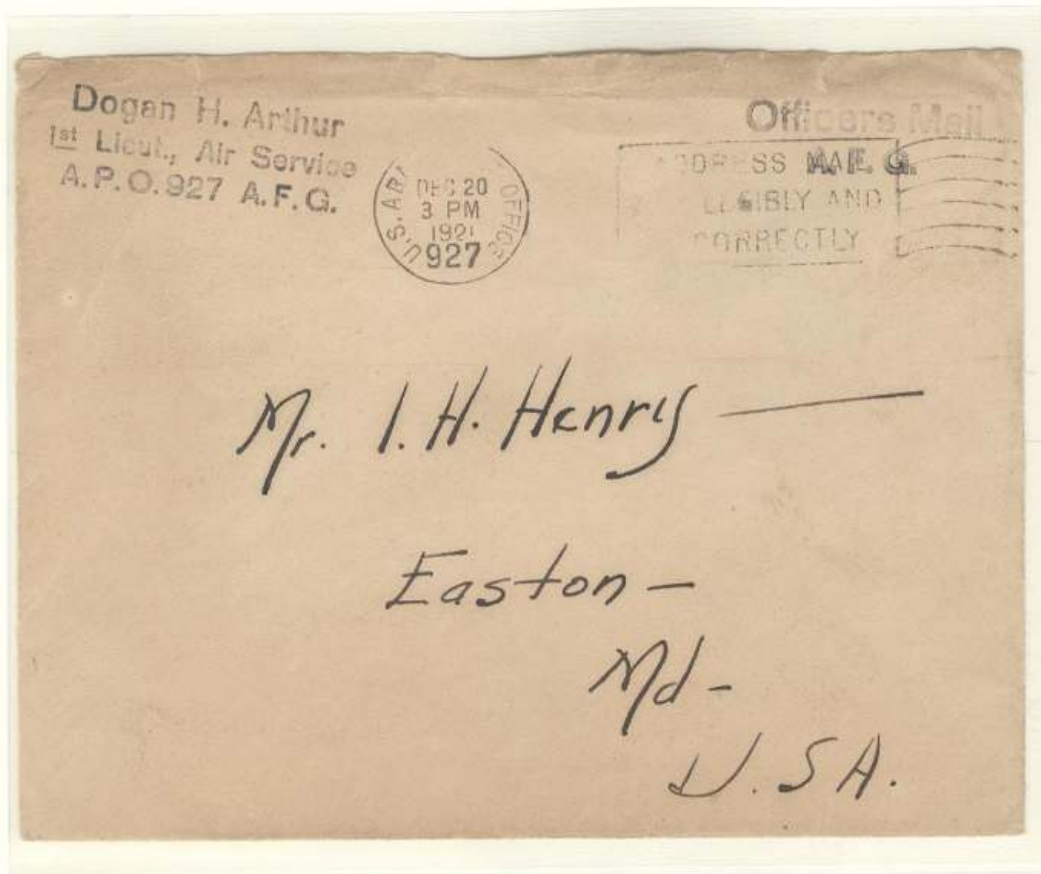 Dogan H. Arthur
1st Lieut., Air Service
A.P.O. 927 A.F.G.
U.S. OFFICE
DEC 20
3 PM
1921
927
Officers Mail
ADDRESS
LEGIBLY AND
CORRECTLY
Mr. I. H. Henry —
Easton —
Md —
U.S.A.